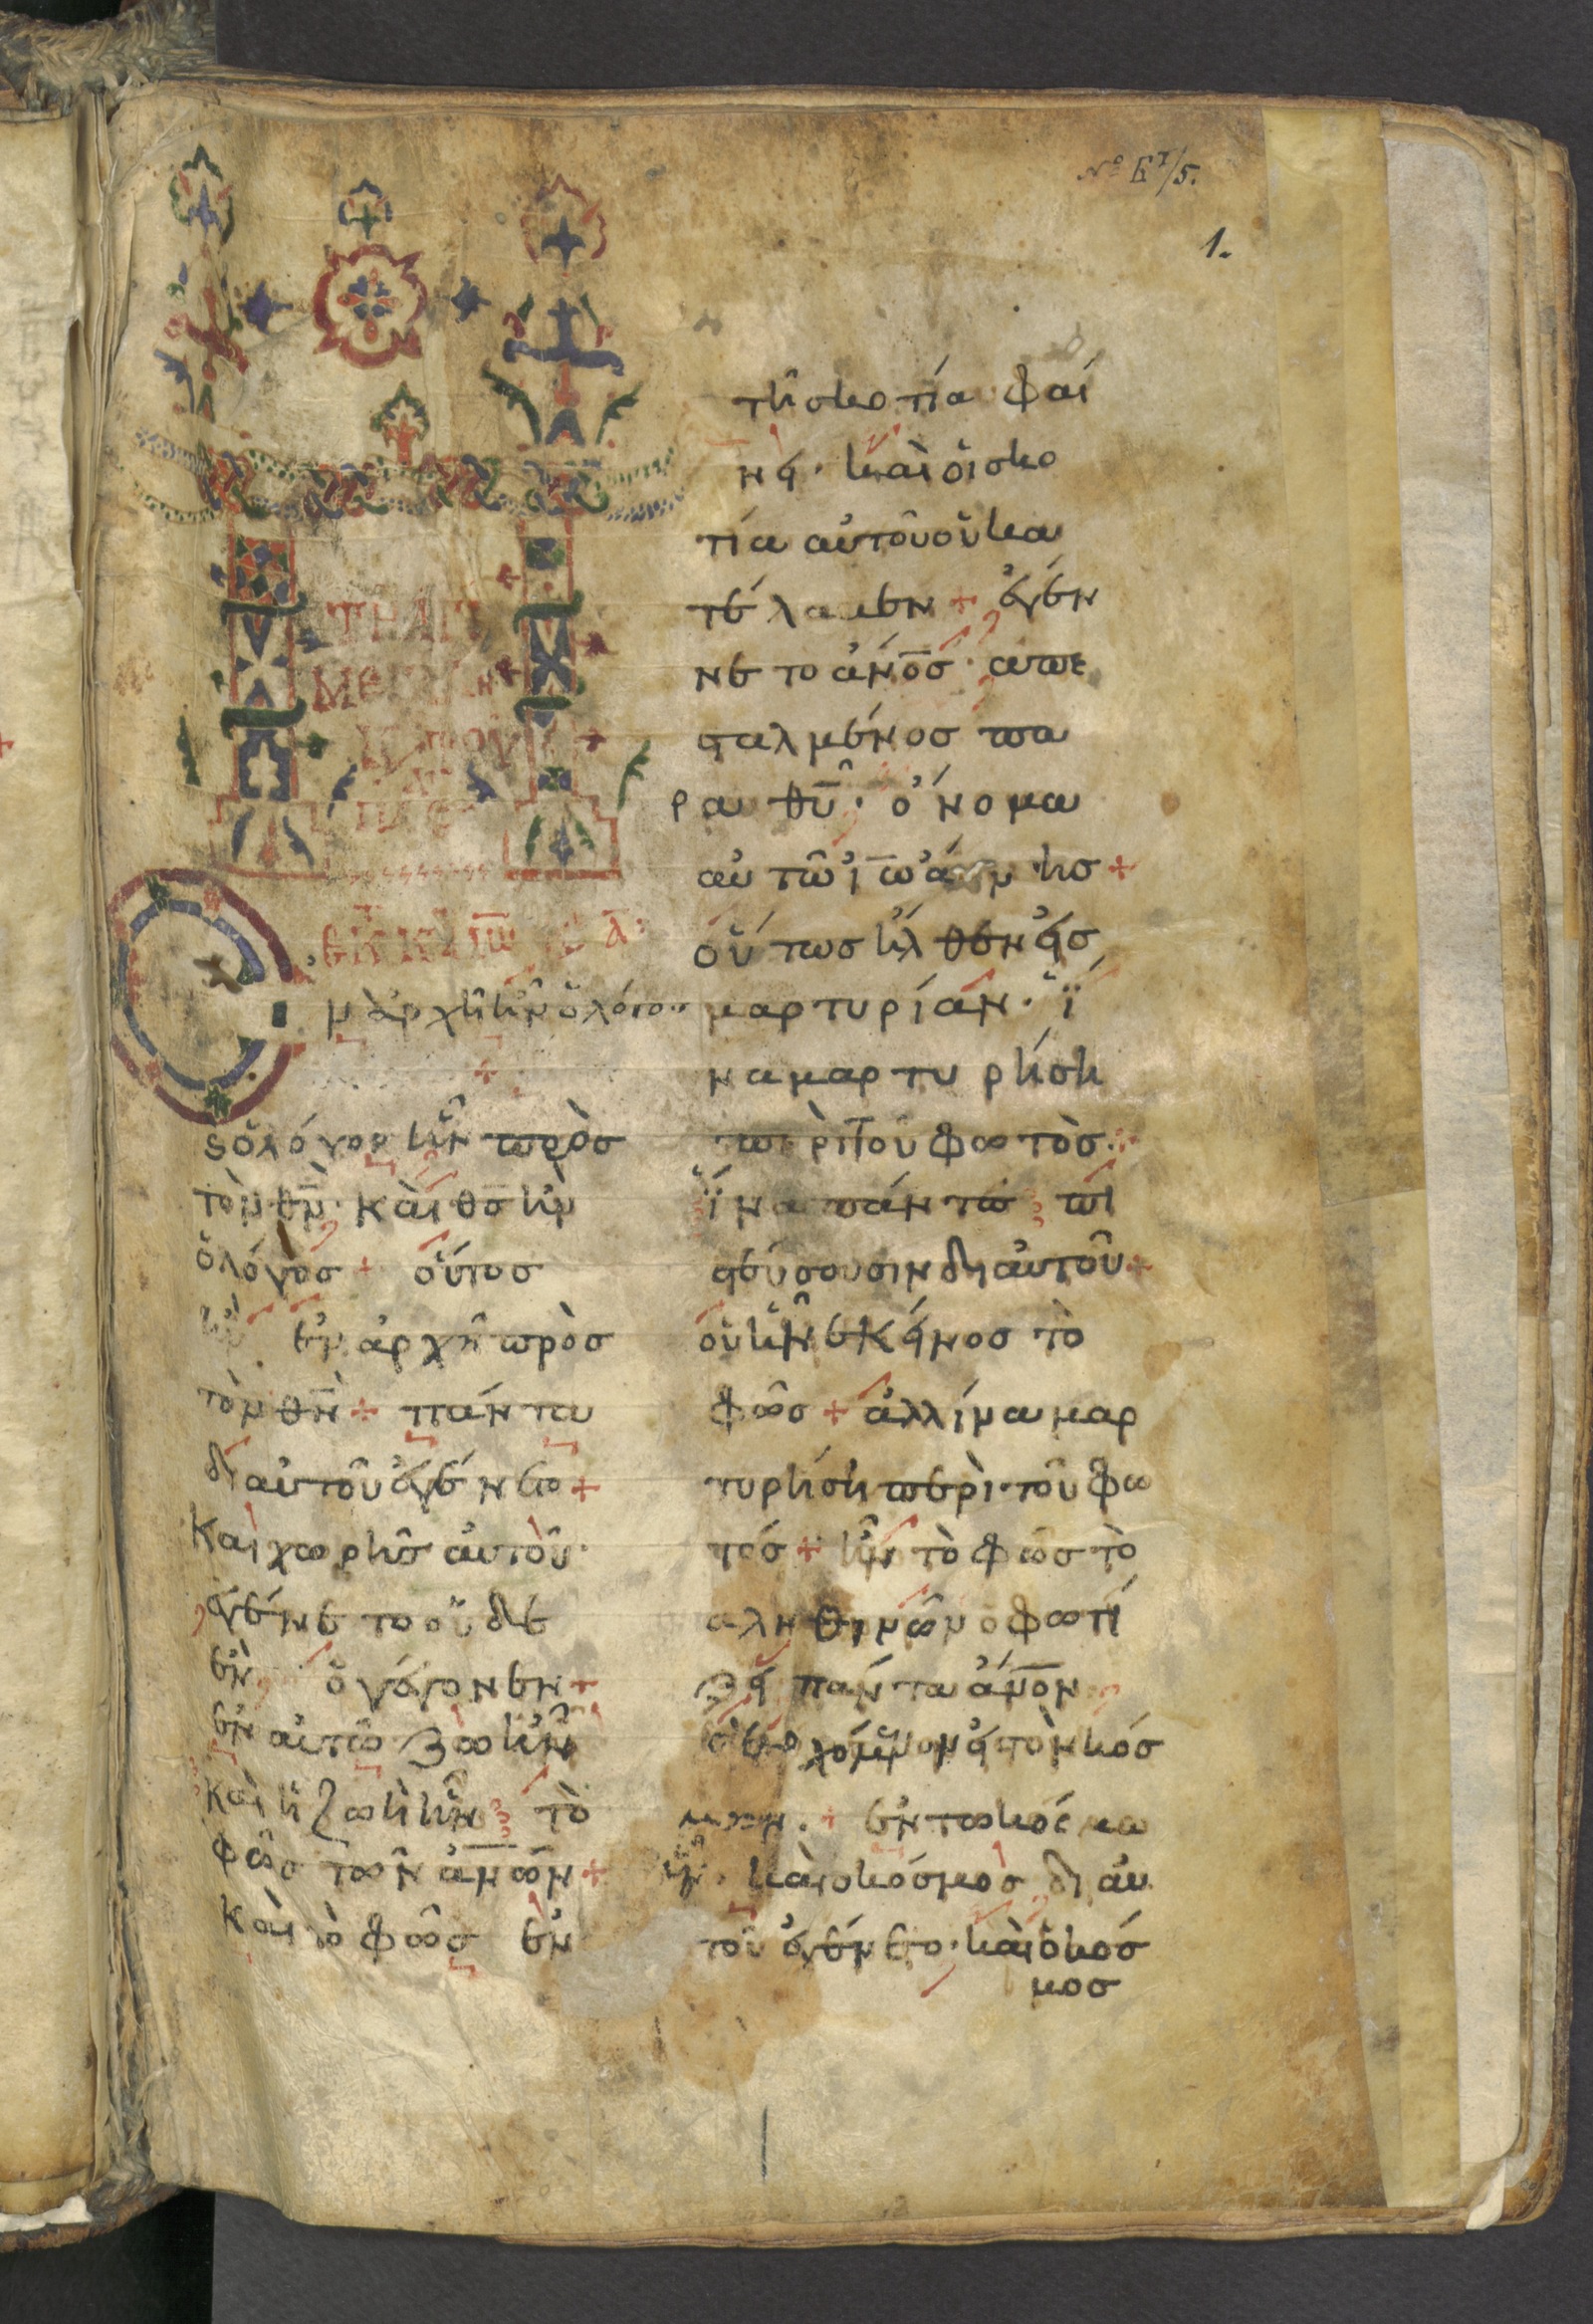 № Б 1/5.
1.
ΤΗ ΑΓΙ
ΜΕΓΑΛΗ
ΚΥ ΤΟΥ
ΠΑΣ
ΕΚ Κ ΙΩ α
Ἐν ἀρχῆ ἦν ὁ λόγος
+
ς ὁ λόγος ἦν πρὸς
τὸν θν· καὶ θς ἦν
ὁ λόγος + οὗτος
ἦν ἐν ἀρχῆ πρὸς
τὸν θν + πάντα
δι αὐτοῦ ἐγένετο +
Καὶ χωρῆς αὐτοῦ·
ἐγένετο οὐδὲ
ἐν ὃ γέγονεν +
ἐν αὐτῶ ζωὴ ἦν
καὶ ἡ ζωὴ ἦν τὸ
φῶς τῶν ἀνῶν +
καὶ τὸ φῶς ἐν
τῆ σκοτία φαί
νει· καὶ οἱ σκο
τία αὐτοῦ οὐ κα
τέλαβεν + ἐγέν
νετο ἀνος· ἀπε
σταλμένος πα
ρα θυ· ὄνομα
αὐτῶ ἰωάννης +
οὕτως ἦλθεν εἰς
μαρτυρίαν· ἵ
να μαρτυρήση
περὶ τοῦ φωτὸς·
ἵνα πάντες πι
στεύσουσιν δι αὐτοῦ +
οὐκ ἦν ἐκεῖνος τὸ
φῶς + ἀλλ ἵνα μαρ
τυρήση περὶ τοῦ φω
τός + ἦν τὸ φῶς τὸ
αληθινῶν ὁ φωτί
ζει πάντα ἄνον
ἐρχόμενον εἰς τὸν κόσ
μον + ἐν τω κόσμω
ἦν· καὶ ο κόσμος δι αὐ
τοῦ ἐγένετο· καὶ ὁ κόσ
μος